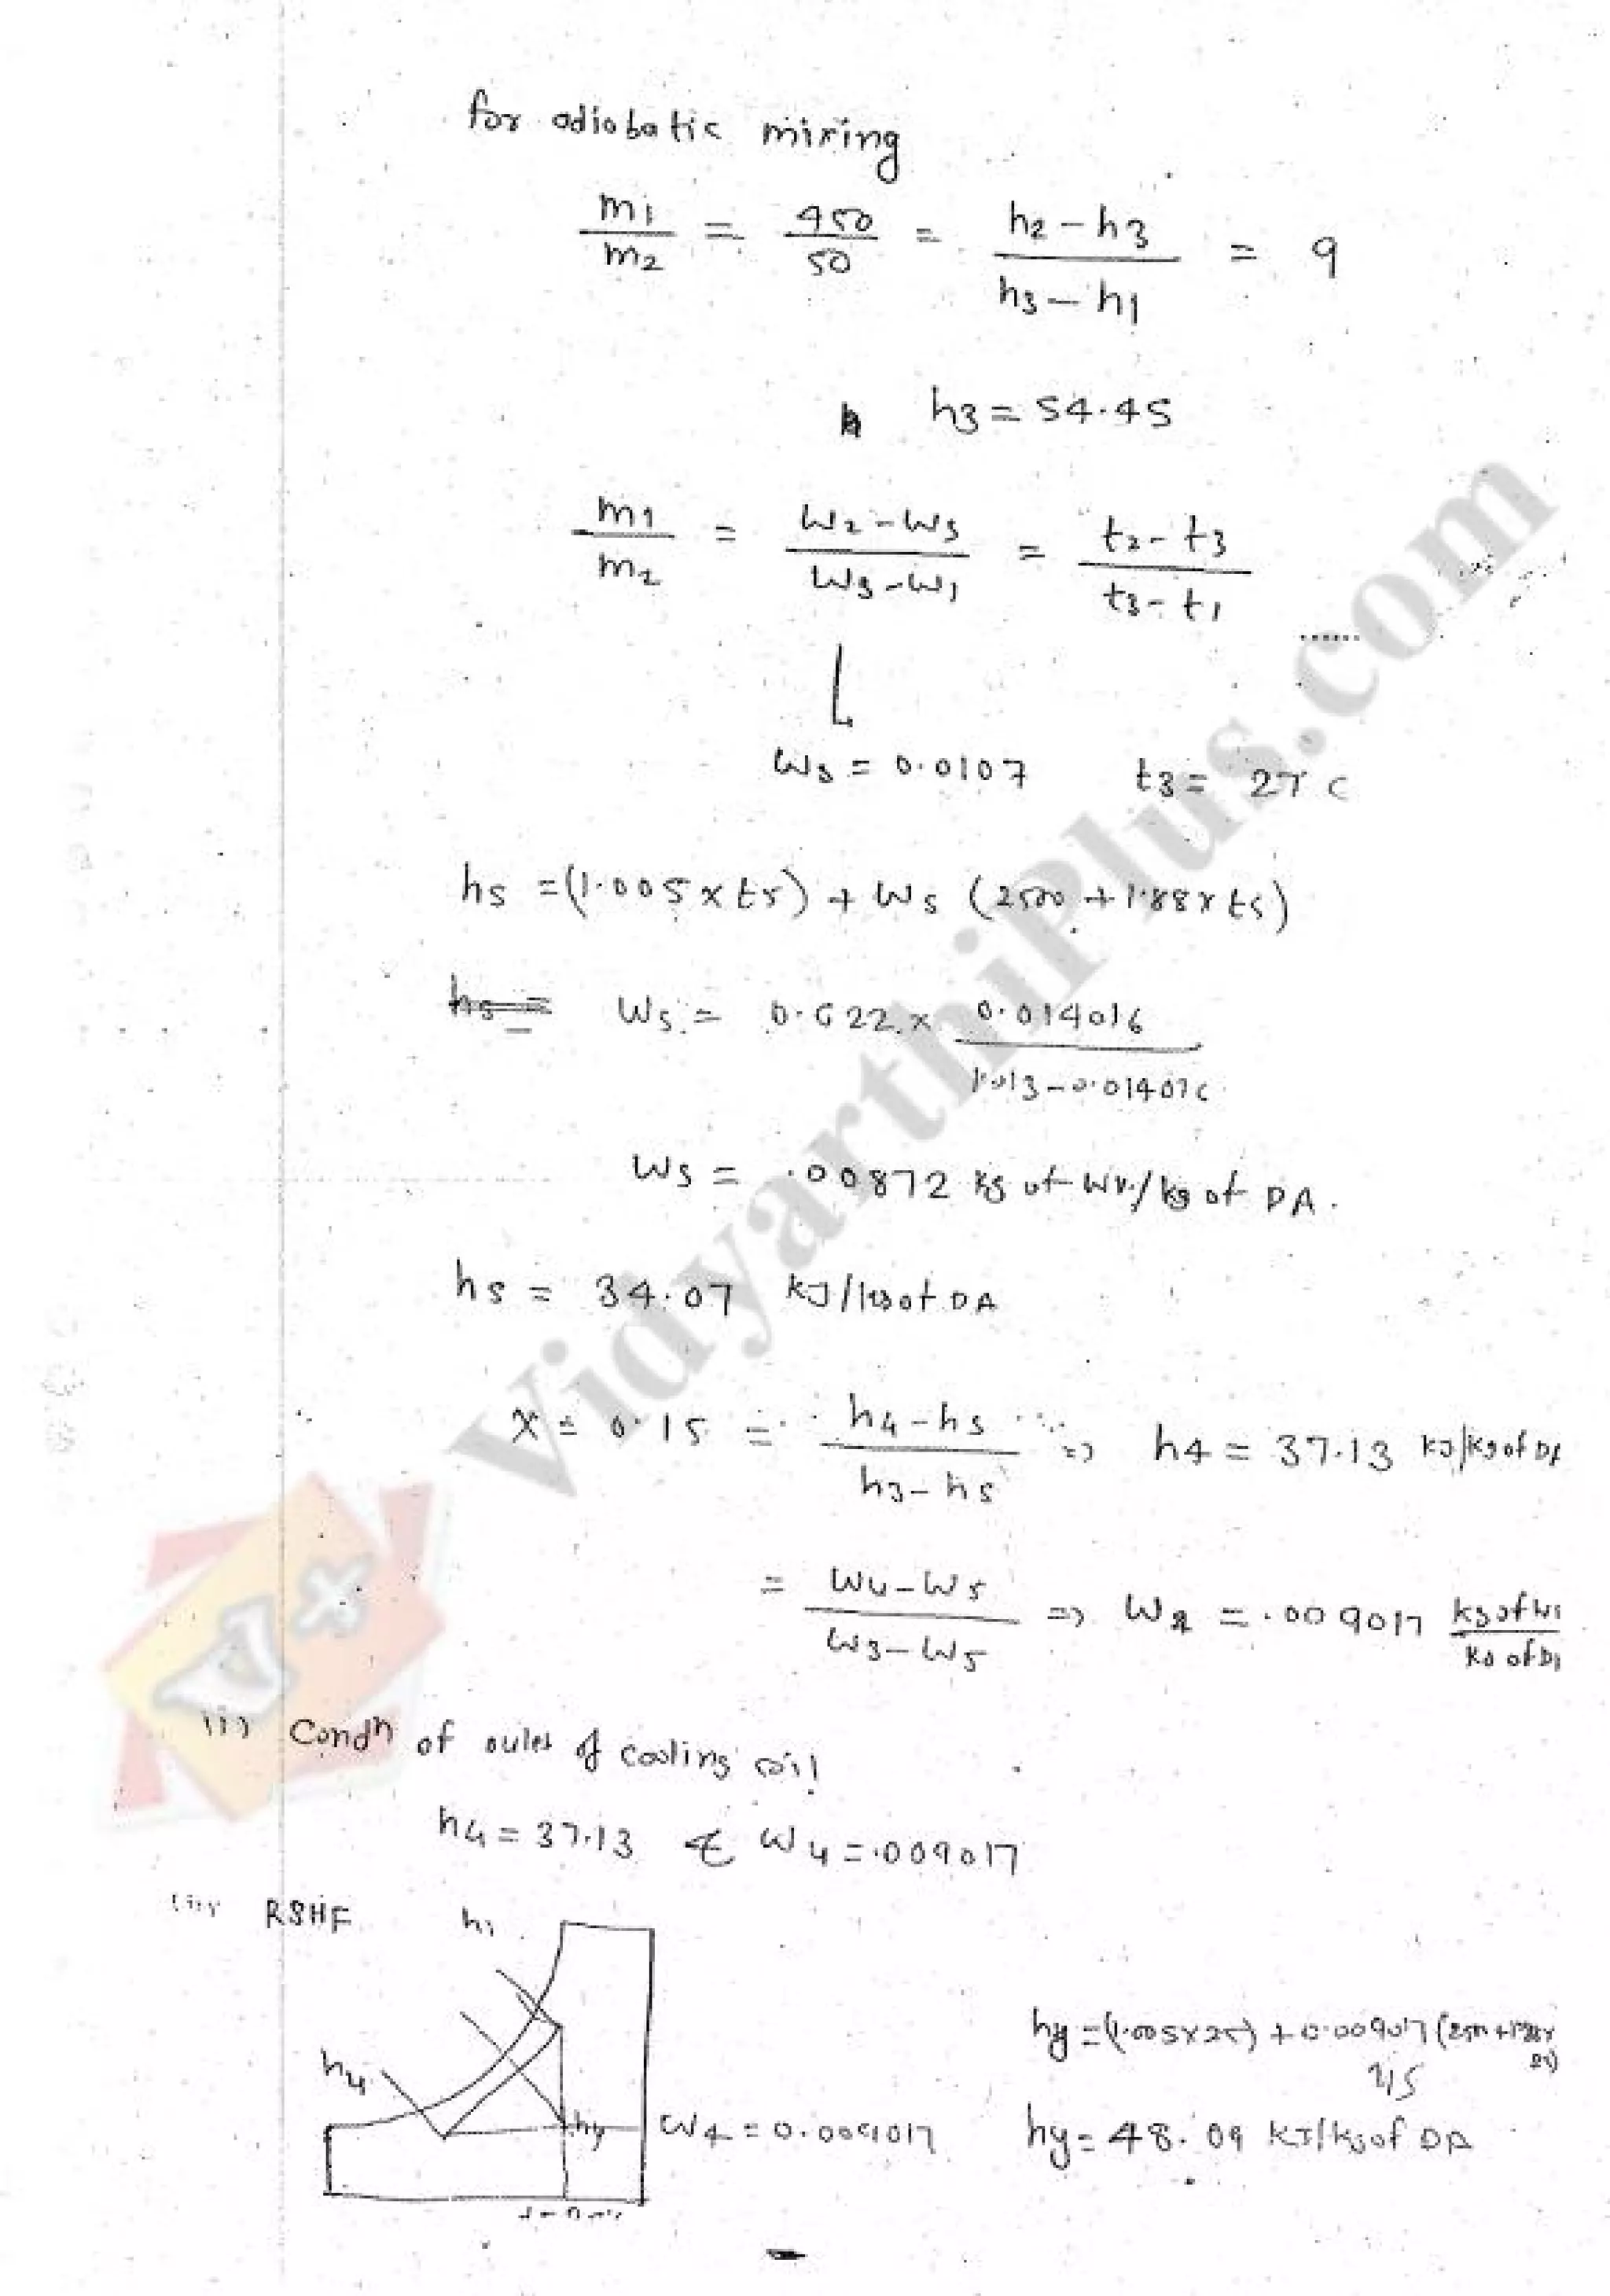 for adiabatic mixing
m1/m2 = 450/50 = (h2 - h3)/(h3 - h1) = 9
h3 = 54.45
m1/m2 = (W2 - W3)/(W3 - W1) = (t2 - t3)/(t3 - t1)
W3 = 0.0107 t3 = 27 c
h5 = (1.005 x t5) + W5 (2500 + 1.88 x t5)
W5 = 0.622 x 0.014016/(1.013 - 0.01401c)
W5 = .00872 kg of WV/kg of DA.
h5 = 34.07 kJ/kg of DA
X = 0.15 = (h4 - h5)/(h3 - h5) => h4 = 37.13 kJ/kg of DA
= (W4 - W5)/(W3 - W5) => W4 = .009017 kg of W/kg of D
ii) Condn of oulet of cooling coil
h4 = 37.13 & W4 = .009017
RSHF
h1
h4
hy
W4 = 0.009017
hy = (1.005 x 25) + 0.009017 (2500 + 1.88 x 25)
hy = 48.09 kJ/kg of DA
VidyarthiPlus.com
V+